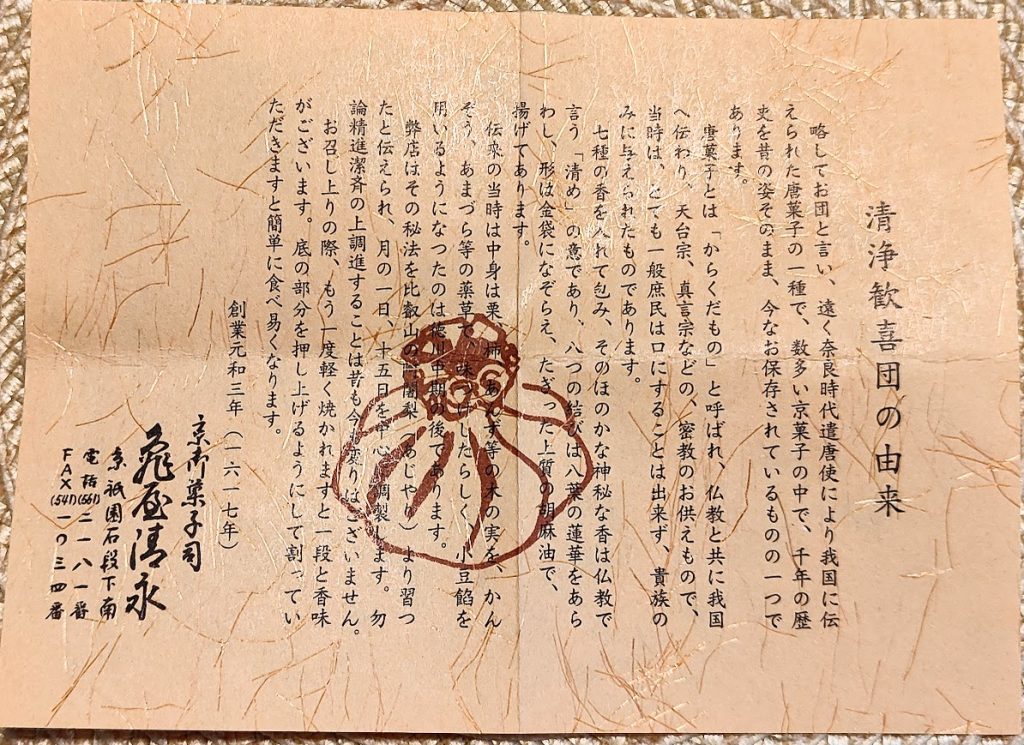 清浄歓喜団の由来
略してお団と言い、遠く奈良時代遣唐使により我国に伝
えられた唐菓子の一種で、数多い京菓子の中で、千年の歴
史を昔の姿そのまま、今なお保存されているものの一つで
あります。
唐菓子とは「からくだもの」と呼ばれ、仏教と共に我国
へ伝わり、天台宗、真言宗などの、密教のお供えもので、
当時は、とても一般庶民は口にすることは出来ず、貴族の
みに与えられたものであります。
七種の香を入れて包み、そのほのかな神秘な香は仏教で
言う「清め」の意であり、八つの結びは八葉の蓮華をあら
わし、形は金袋になぞらえ、たぎった上質の胡麻油で、
揚げてあります。
伝来の当時は中身は栗、柿、あんず等の木の実を、かん
ぞう、あまづら等の薬草で、味つけしたらしく、小豆餡を
用いるようになつたのは徳川中期の後であります。
弊店はその秘法を比叡山の阿闍梨(あじゃり)より習つ
たと伝えられ、月の一日、十五日を中心に調製します。勿
論精進潔斉の上調進することは昔も今も変りはございません。
お召し上りの際、もう一度軽く焼かれますと一段と香味
がございます。底の部分を押し上げるようにして割ってい
ただきますと簡単に食べ易くなります。
創業元和三年(一六一七年)
京御菓子司
亀屋清永
京祇園石段下南
電話(561)二一八一番
FAX(541)一〇三四番